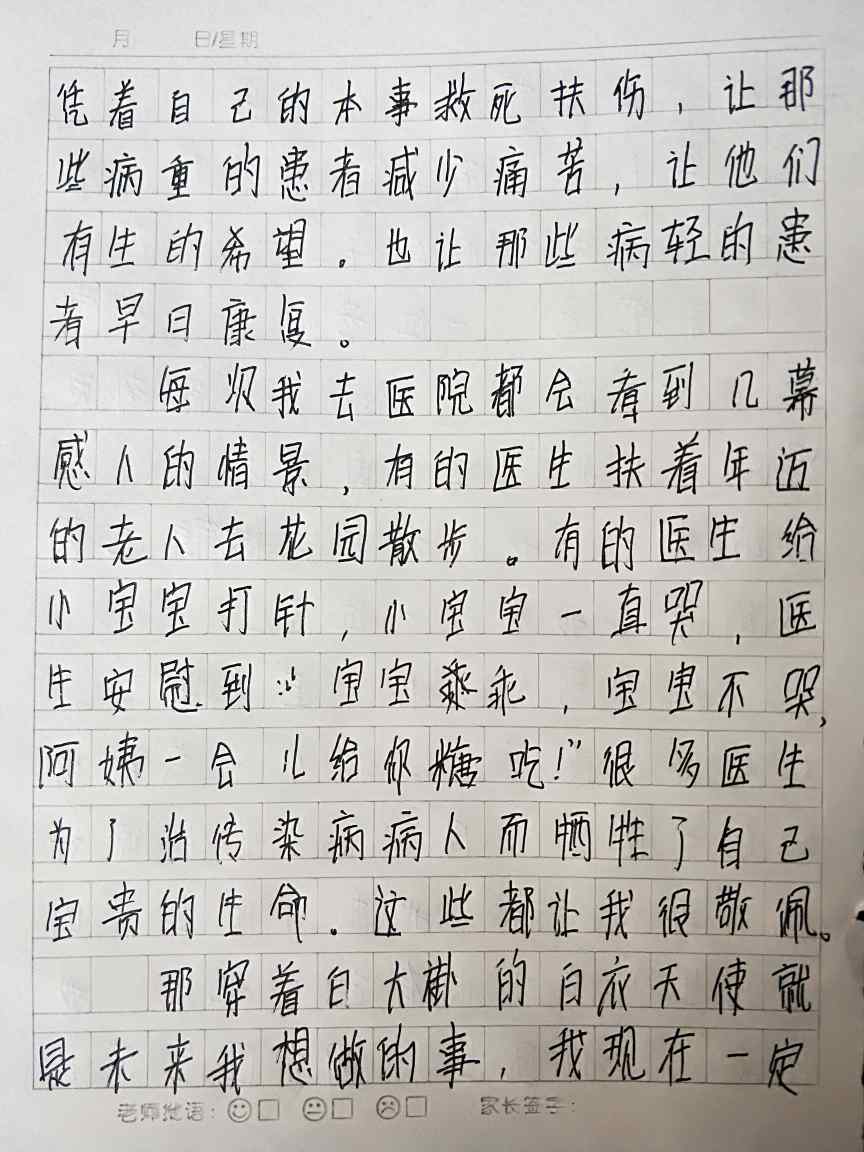 月 日/星期
凭着自己的本事救死扶伤，让那
些病重的患者减少痛苦，让他们
有生的希望。也让那些病轻的患
者早日康复。
每次我去医院都会看到几幕
感人的情景，有的医生扶着年迈
的老人去花园散步。有的医生给
小宝宝打针，小宝宝一直哭，医
生安慰到:“宝宝乘乖，宝宝不哭，
阿姨一会儿给你糖吃!”很多医生
为了治传染病病人而牺牲了自己
宝贵的生命。这些都让我很敬佩。
那穿着白大褂的白衣天使就
是未来我想做的事，我现在一定
老师批语: 家长签字: